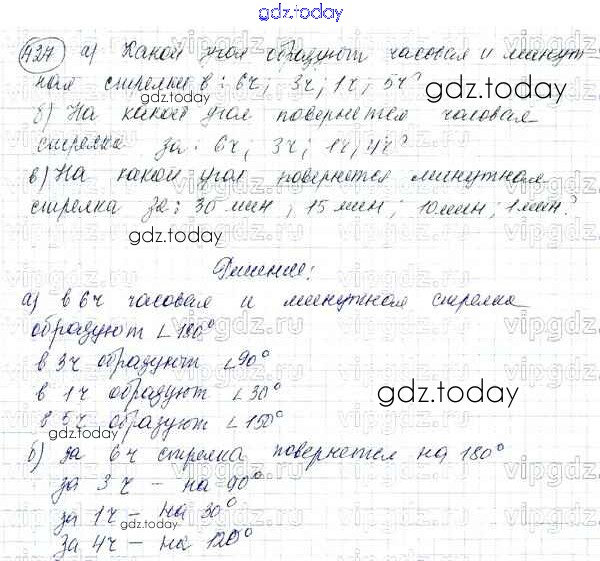 gdz.today
427 а) Какой угол образуют часовая и минут-
ная стрелки в: 6ч; 3ч; 1ч; 5ч?
gdz.today
б) На какой угол повернется часовая
стрелка за: 6ч; 3ч; 1ч; 4ч?
в) На какой угол повернется минутная
стрелка за: 30 мин; 15 мин; 10 мин; 1 мин?
gdz.today
Решение:
а) в 6ч часовая и минутная стрелка
образуют ∠180°
в 3ч образуют ∠90°
в 1ч образуют ∠30°
gdz.today
в 5ч образуют ∠150°
б) за 6ч стрелка повернется на 180°
за 3ч – на 90°
за 1ч – на 30°
gdz.today
за 4ч – на 120°
gdz.today
vipgdz.ru